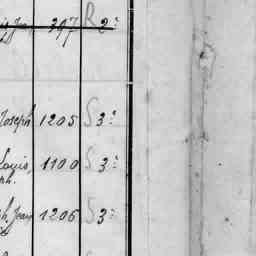 397 R 2:
Joseph 1205 S 3:
Louis, 1100 S 3:
ph.
h Jean 1206 S 3: